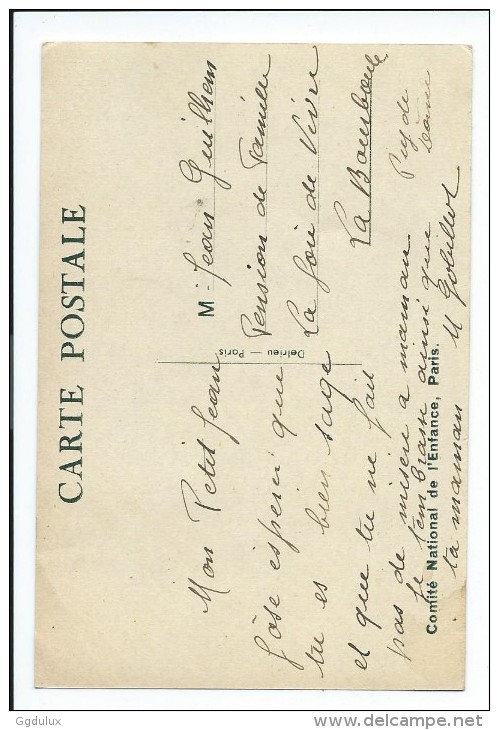 CARTE POSTALE
Mon Petit Jean
J'ose espérer que
tu es bien sage
et que tu ne fait
pas de misere a maman
Je t'embrasse ainsi que
ta maman M Gobillot
M. Jean Guilhem
Pension de Famille
La Joie de Vivre
La Bourboule
Puy de
Dôme
Delrieu — Paris
Comité National de l'Enfance, Paris.
Ggdulux
delcampe.net